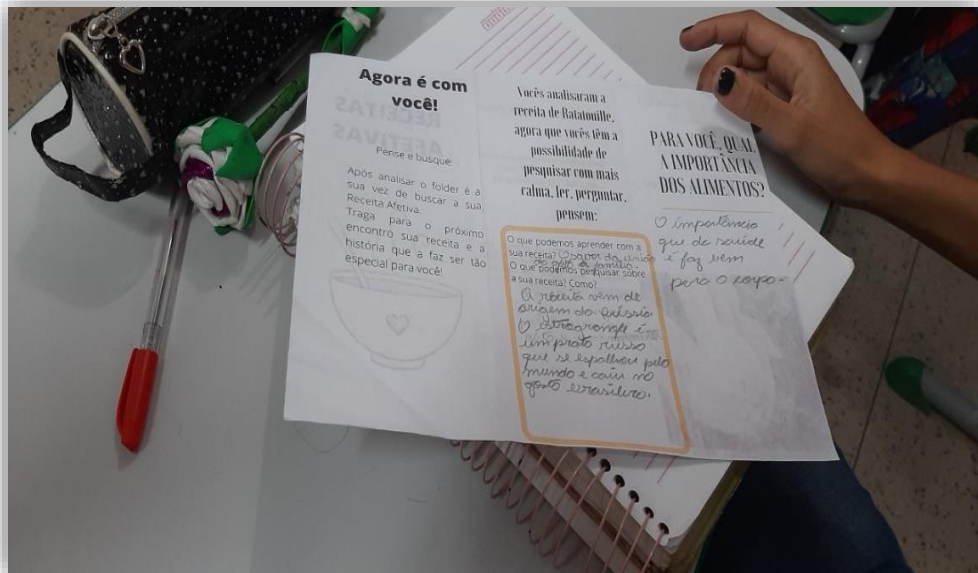 Agora é com
você!
Pense e busque:
Após analisar o folder é a
sua vez de buscar a sua
Receita Afetiva.
Traga para o próximo
encontro sua receita e a
história que a faz ser tão
especial para você!
RECEITAS
AFETIVAS
Vocês analisaram a
receita de Ratatouille,
agora que vocês têm a
possibilidade de
pesquisar com mais
calma, ler, perguntar,
pensem:
O que podemos aprender com a
sua receita? O sabor da união
família.
O que podemos pesquisar sobre
a sua receita? Como?
A receita vem de
origem da Rússia
O estrogonofe é
um prato russo
que se espalhou pelo
mundo e caiu no
gosto brasileiro.
PARA VOCÊ, QUAL
A IMPORTÂNCIA
DOS ALIMENTOS?
O importância
que da saúde
e faz bem
para o corpo.